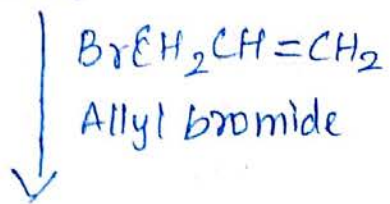 BrCH₂CH=CH₂
Allyl bromide